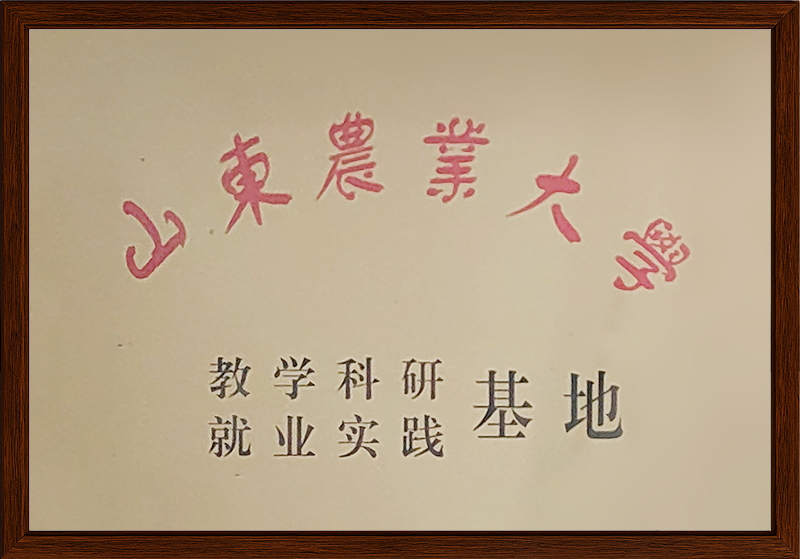 山東農業大學
教学科研
就业实践
基地